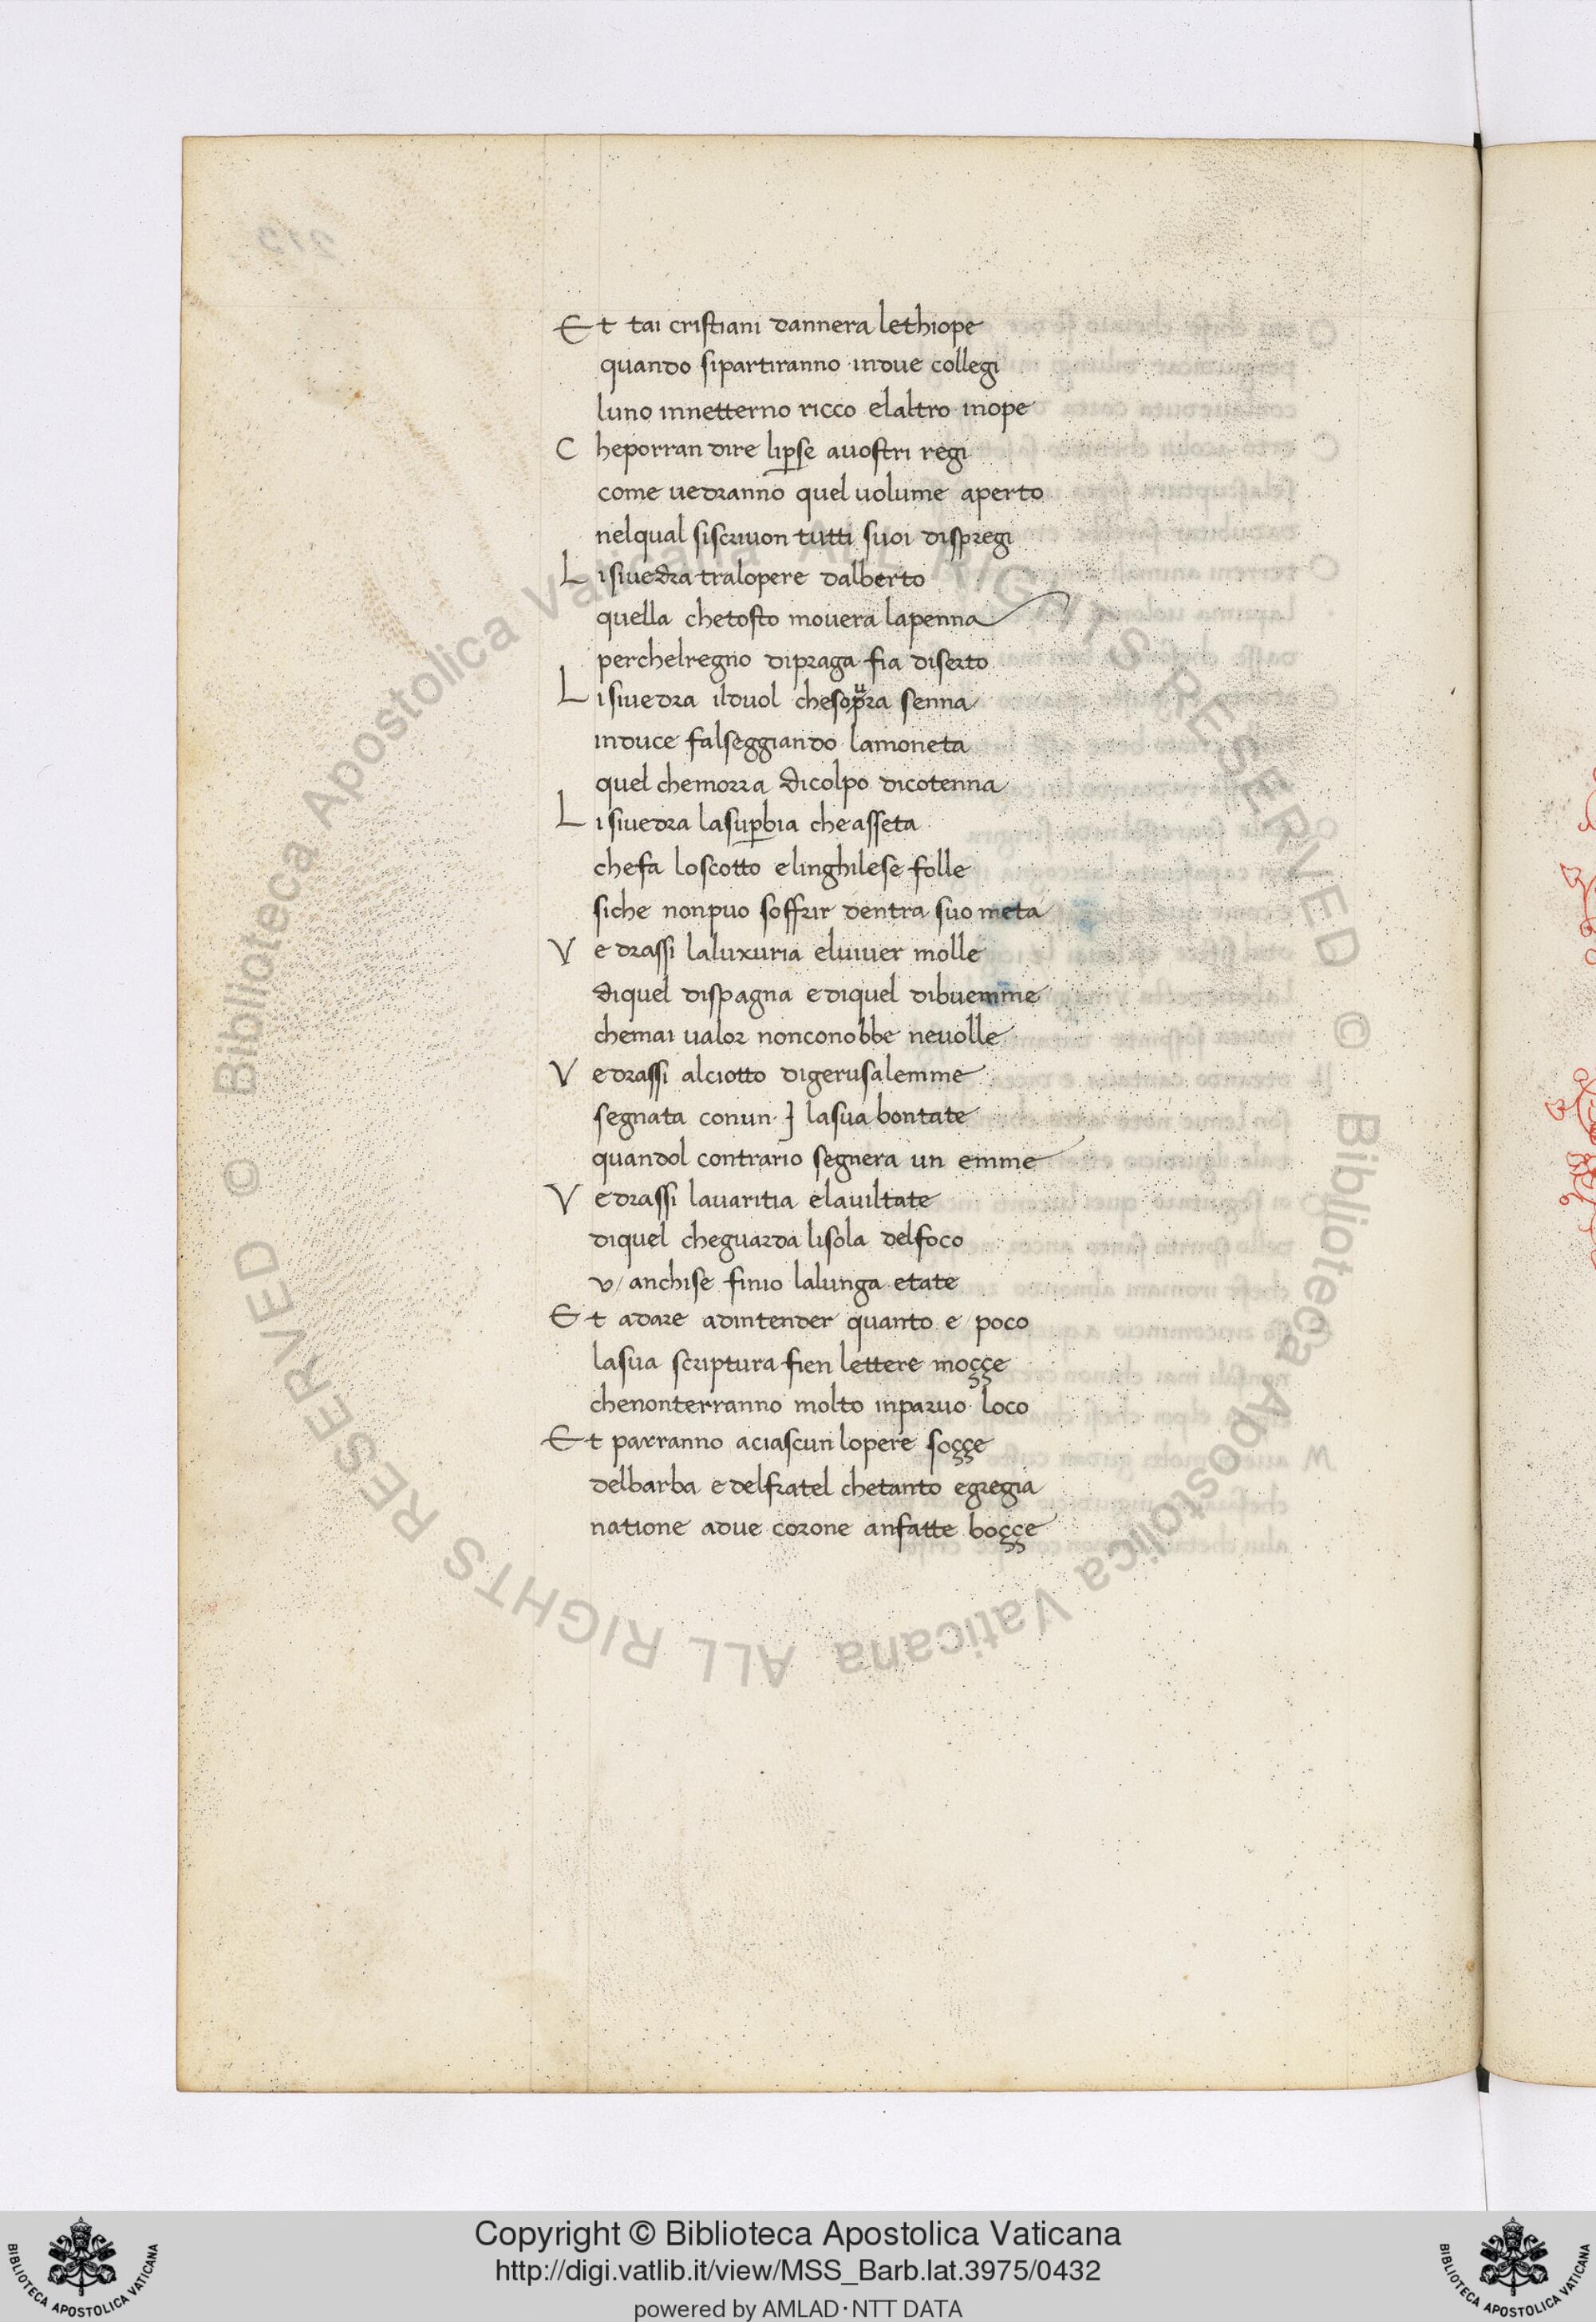 Et tai cristiani dannera lethiope
quando sipartiranno indue collegi
luno innetterno ricco elaltro inope
Cheporran dire lip̱se auostri regi
come uedranno quel uolume aperto
nelqual siscriuon tutti suoi dispregi
Lisiuedra tralopere dalberto
quella chetosto mouera lapenna
perchelregno dipraga fia diserto
Lisiuedra ilduol chesoura senna
induce falseggiando lamoneta
quel chemorra dicolpo dicotenna
Lisiuedra lasup̱bia cheasseta
chefa loscotto elinghilese folle
siche nonpuo soffrir dentra suo meta
Vedrassi laluxuria eluiuer molle
diquel dispagna ediquel dibuemme
chemai ualor nonconobbe neuolle
Vedrassi alciotto digerusalemme
segnata conun · J lasua bontate
quandol contrario segnera un emme
Vedrassi lauaritia elauiltate
diquel cheguarda lisola delfoco
v/ anchise finio lalunga etate
Et adare adintender quanto e poco
lasua scriptura fien lettere moççe
chenonterranno molto inparuo loco
Et parranno aciascun lopere soççe
delbarba edelfratel chetanto egregia
natione adue corone anfatte boççe
Copyright © Biblioteca Apostolica Vaticana
http://digi.vatlib.it/view/MSS_Barb.lat.3975/0432
powered by AMLAD·NTT DATA
BIBLIOTECA APOSTOLICA VATICANA
BIBLIOTECA APOSTOLICA VATICANA
© Biblioteca Apostolica Vaticana ALL RIGHTS RESERVED © Biblioteca Apostolica Vaticana ALL RIGHTS RESERVED